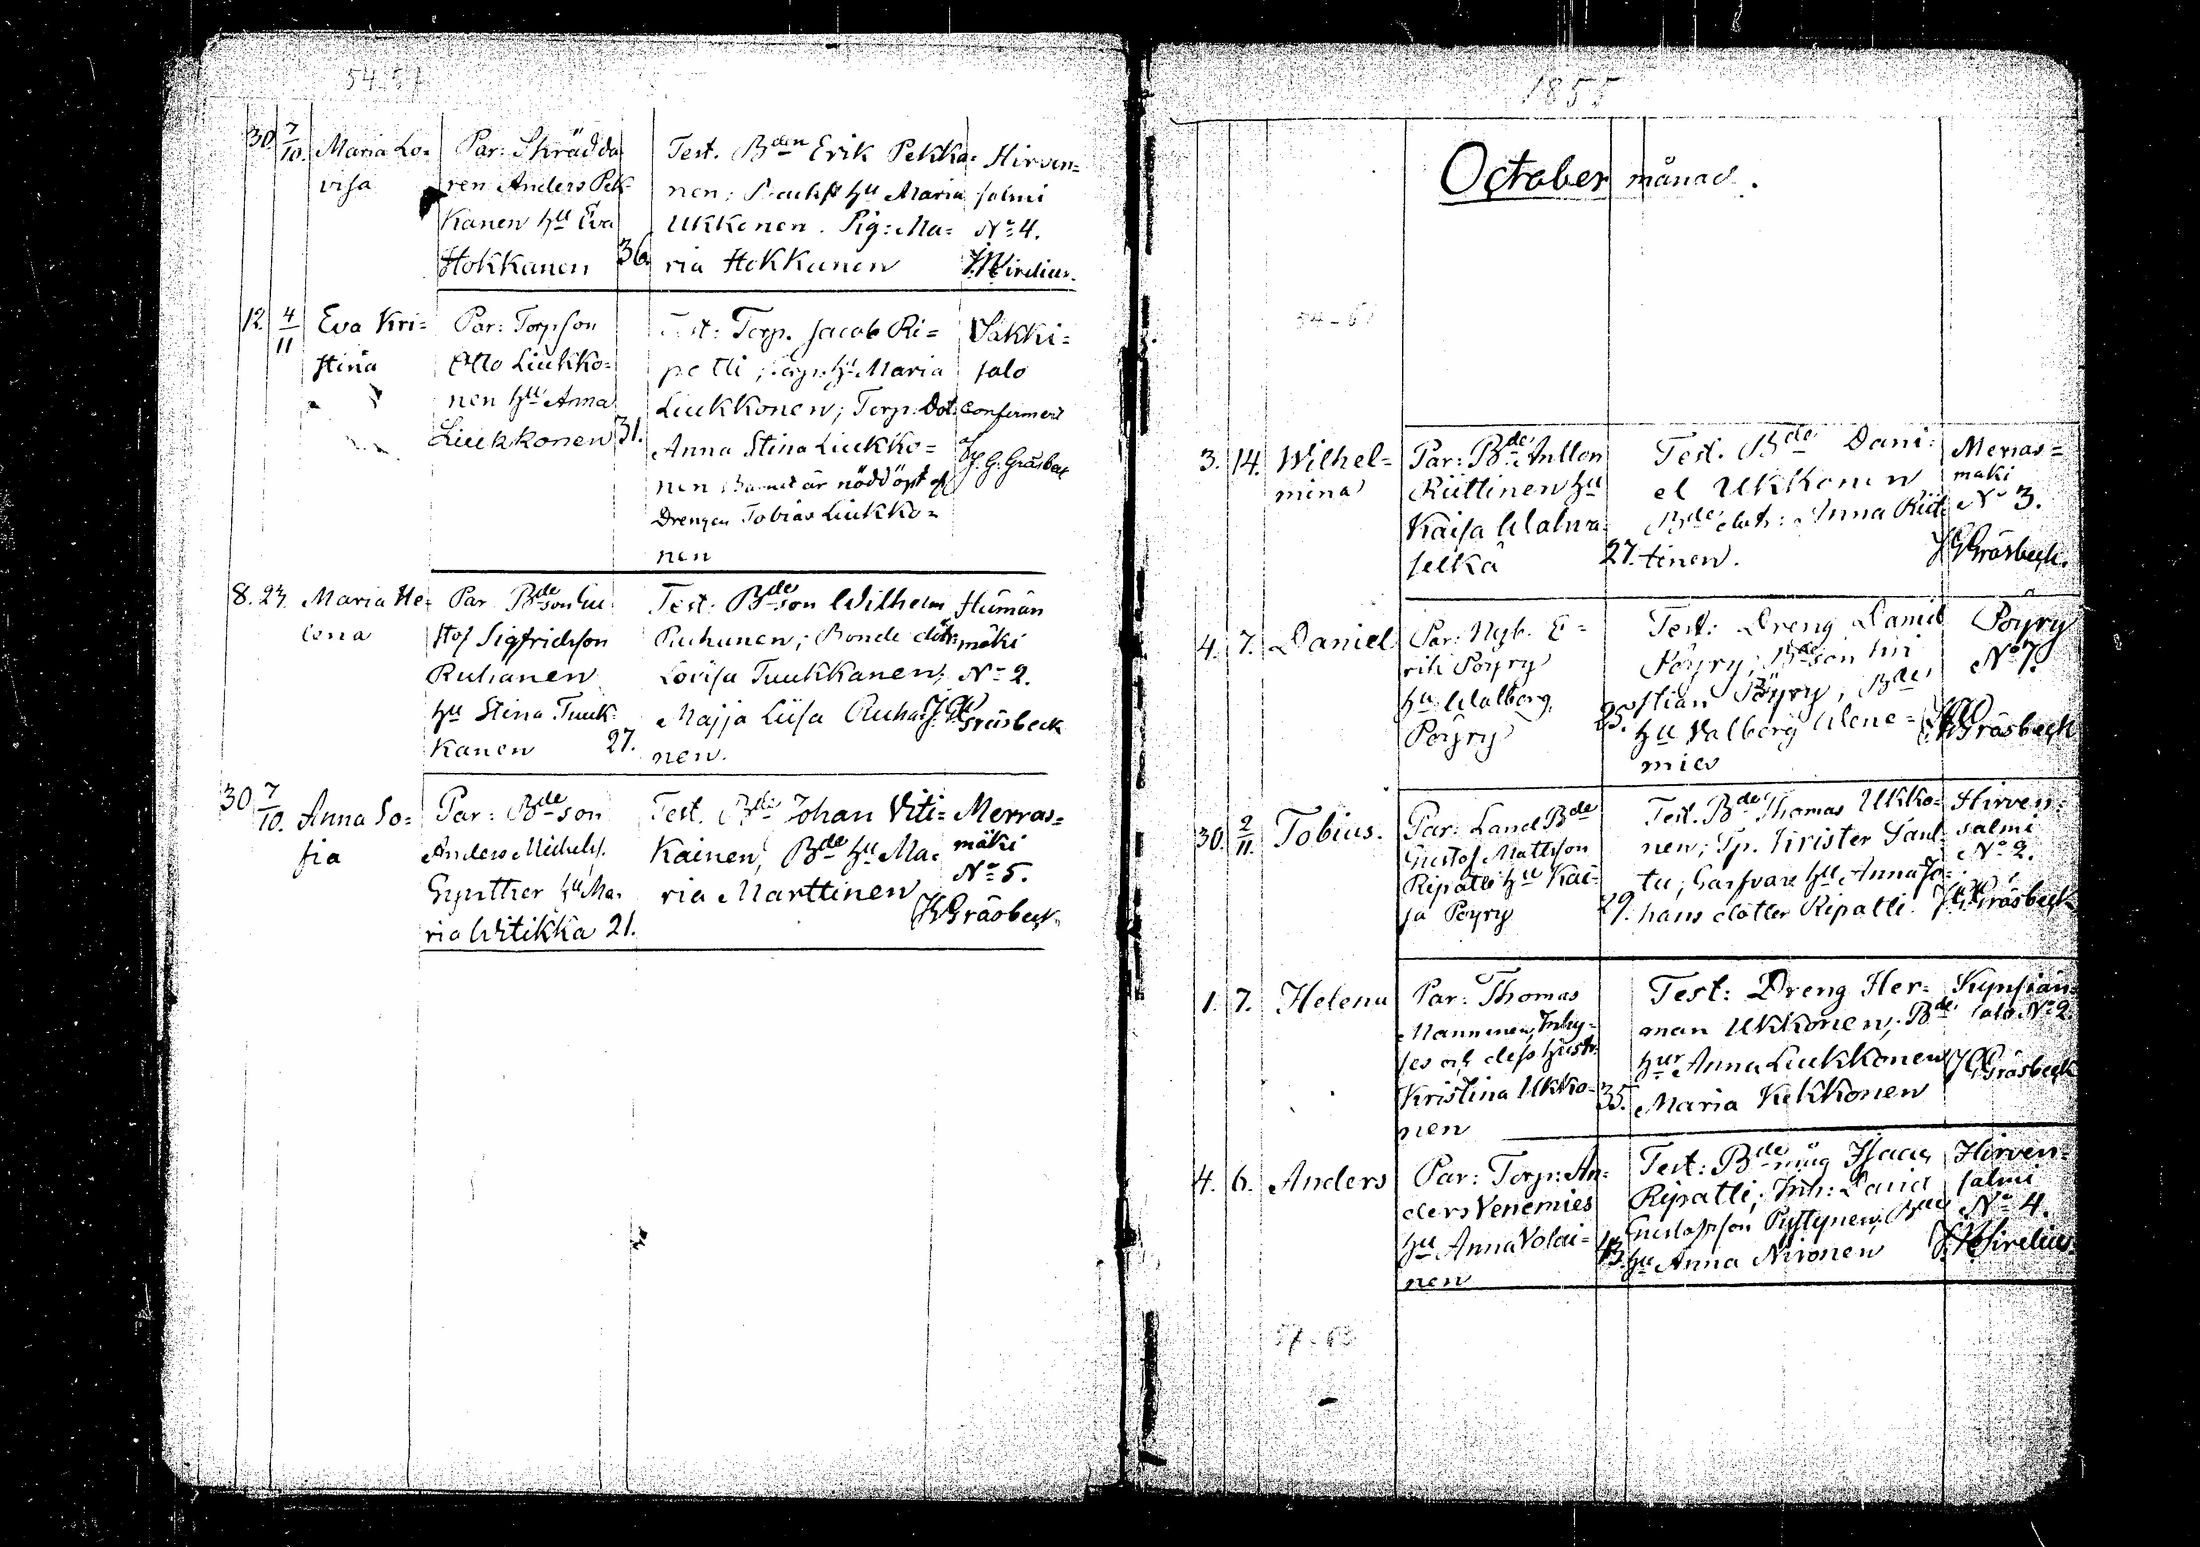 30 7/10. Maria Lo=
visa
Par: Skrädda
ren Anders Pek
kanen hu Eva
Hokkanen 36.
Test. Bden Erik Pekka=
nen; hu Maria
Ukkonen. Pig: Ma=
ria Hokkanen
Hirven=
salmi
No 4.
12. 4/11 Eva Kri=
stina
Par: Torpson
Otto Liukko=
nen hu Anna
Liukkonen 31.
Test: Torp. Jacob Ri=
patti; hu Maria
Liukkonen; Torp. Dot.
Anna Stina Liukko=
nen Barnet är nöddöpt af
Drengen Tobias Liukko=
nen
Vakki=
salo
J. G. Gräsbeck
8. 23. Maria He=
lena
Par Bdeson Gu
stof Sigfridsson
Ruhanen
hu Stina Tuuk
kanen 27.
Test: Bdeson Wilhelm
Ruhanen; Bonde dótr:
Lovisa Tuukkanen;
Majja Liisa Ruha
nen.
Hämän
mäki
No 2.
J. G. Gräsbeck
30 7/10. Anna So=
fia
Par: Bdeson
Anders Michels.
Gynther hu Ma
ria Witikka 21.
Test. Bde Johan Viti=
kainen; Bde hu Ma=
ria Marttinen
Merras=
mäki
No 5.
JGGräsbeck.
1855
October månad.
3. 14. Wilhel=
mina
Par: Bde Antton
Riittinen hu
Kaisa Walwa
selkä 27.
Test. Bde Dani=
el Ukkonen
Bde dotr: Anna Riit
tinen.
Merras=
mäki
No 3.
JGGräsbeck.
4. 7. Daniel
Par: Nyb. E=
rik Pöyry
hu Walborg
Pöyry 25.
Test: Dreng David
Pöyry; Bdeson Kri
stian Pöyry; Bde
hu Valborg Wene=
mies
Pöyry
No 7.
JGGräsbeck
30. 2/11. Tobias.
Par: Land Bde
Gustof Mattsson
Ripatti hu Kai=
sa Pöyry 29.
Test. Bde Thomas Ukko=
nen; Tp. Krister Paul
tu; hu Anna Jo=
hans dotter Ripatti.
Hirven=
salmi
No 2.
J. G. Gräsbeck
1. 7. Helena
Par: Thomas
Manninen, Inhy=
ses och dess hustr.
Kristina Ukko=
nen 35.
Test: Dreng Her=
man Ukkonen; Bde
hur Anna Liukkonen
Maria Kekkonen
Kypsiän
salo No 2.
J. G. Gräsbeck
4. 6. Anders
Par: Torp: An=
ders Venemies
hu Anna Volai=
nen 43.
Test: Bde måg Isaac
Ripatti; Inh: David
Gustafsson Pyttynen; Bde
hu Anna Nironen
Hirven=
salmi
No 4.